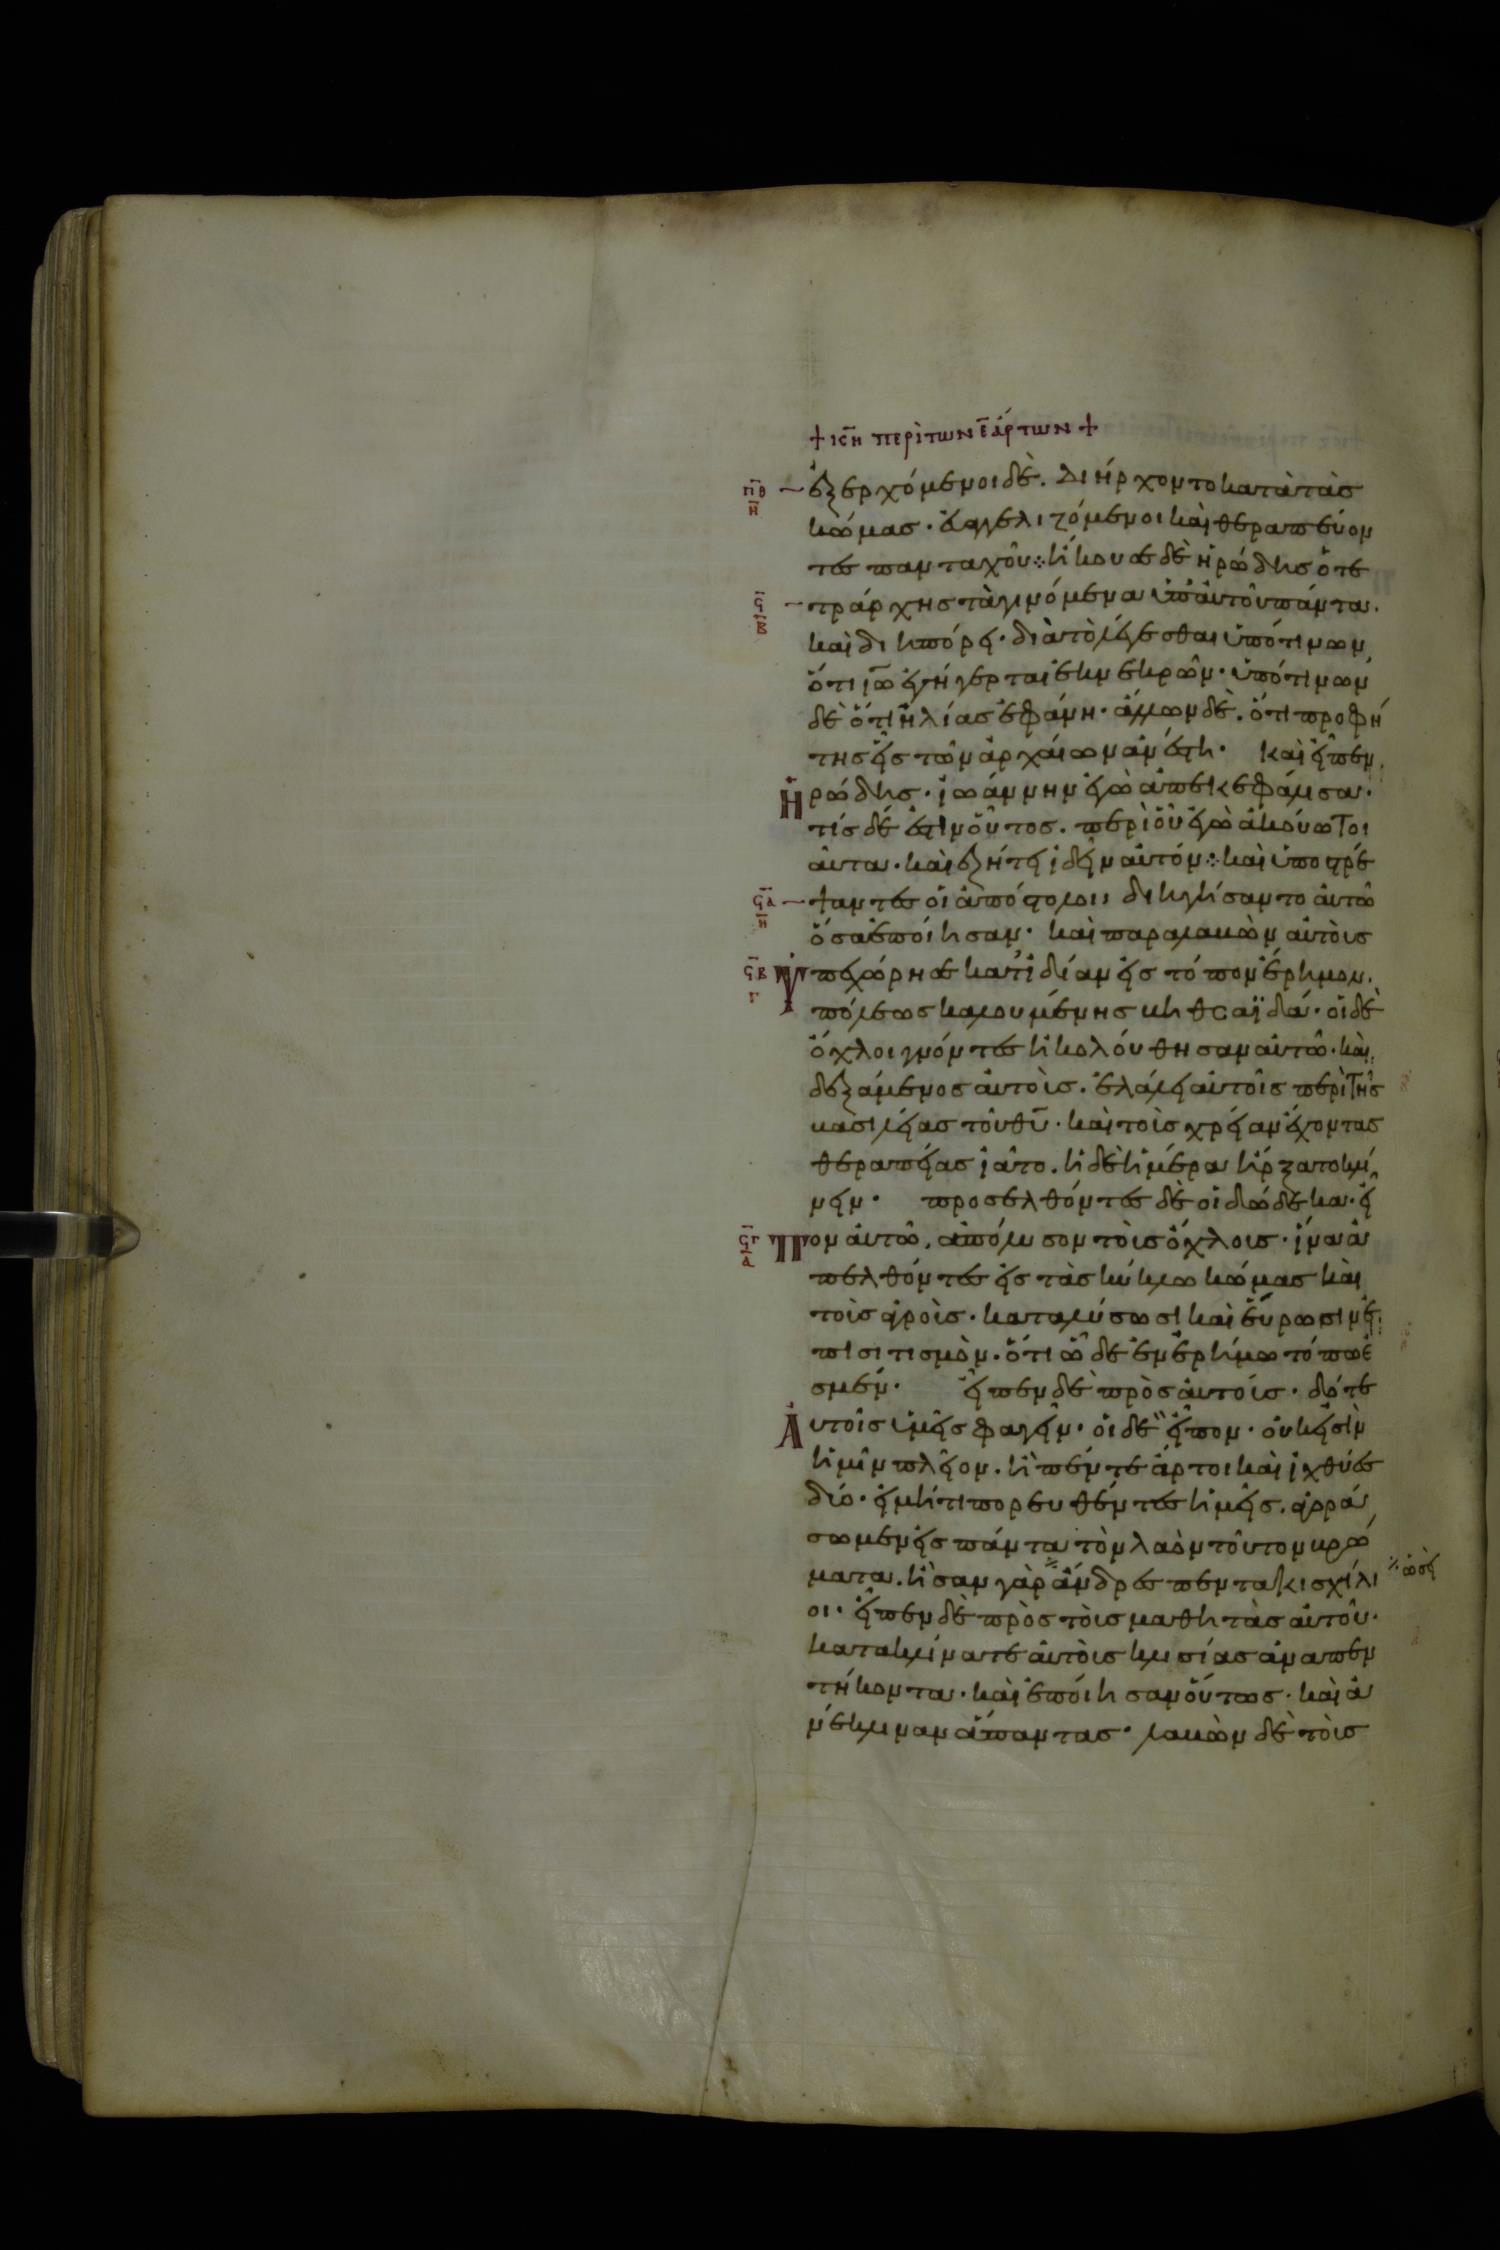 + κη περὶ των ε ἄρτων +
πθ η ἐξερχόμενοι δὲ. διήρχοντο κατὰ τὰς
κώμας· ἐυαγγελιζόμενοι καὶ θεραπεύον
τες πανταχοῦ· ἤκουσε δὲ ἡρώδης ὁ τε
ϟ β τράρχης τὰ γινόμενα ὑπ' ἀυτοῦ πάντα.
καὶ διηπόρει· διὰ τὸ λέγεσθαι ὑπό τινων
ὅτι ἰω ἐγήγερται ἐκ νεκρῶν· ὑπό τινων
δὲ ὅτι ἠλίας ἐφάνη· ἄλλων δὲ. ὅτι προφή
της εἷς τῶν ἀρχαίων ἀνέστη· καὶ εἶπεν
Ἡρώδης· ἰωάννην ἐγὼ ἀπεκεφάλισα·
τίς δέ ἐστιν οὗτος. περὶ οὗ ἐγὼ ἀκούω τοι
αῦτα· καὶ ἐζήτει ἰδεῖν αὐτόν· καὶ ὑποστρέ
ϟα η ψαντες οἱ ἀπόστολοι διηγήσαντο ἀυτῶ
ὅσα ἐποίησαν· καὶ παραλαβὼν αὐτοὺς
ϟβ γ Ὑπεχώρησε κατ' ἰδίαν εἰς τόπον ἔρημον.
πόλεως καλουμένης βηθσαϊδά· οἱ δὲ
ὄχλοι γνόντες ἠκολούθησαν ἀυτῶ· καὶ
δεξάμενος ἀυτοὺς. ἐλάλει ἀυτοῖς περὶ τῆς
βασιλείας τοῦ θυ· καὶ τοὺς χρείαν ἔχοντας
θεραπείας ἰᾶτο. ἡ δὲ ἡμέρα ἤρξατο κλί
νειν· προσελθόντες δὲ οἱ δώδεκα· εἶ
ϟγ α Πον ἀυτῶ. ἀπόλυσον τοὺς ὄχλους· ἵνα ἀ
πελθόντες εἰς τὰς κύκλω κώμας καὶ
τοὺς ἀγροὺς· καταλύσωσι καὶ εὕρωσιν ἐ
πισιτισμὸν· ὅτι ὧδε ἐν ἐρήμω τόπω ἐ
σμεν· εἶπεν δὲ πρὸς ἀυτούς· δότε
Ἀυτοῖς ὑμεῖς φαγεῖν· οἱ δὲ εἶπον· οὐκ εἰσὶν
ἡμῖν πλεῖον. ἢ πέντε ἄρτοι καὶ ἰχθύες
δύο· εἰ μήτι πορευθέντες ἡμεῖς. ἀγορά
σωμεν εἰς πάντα τὸν λαὸν τοῦτον βρώ
ματα. ἦσαν γὰρ ἄνδρες πεντακισχίλι
ὡσεὶ
οι· εἶπεν δὲ πρὸς τοὺς μαθητὰς ἀυτοῦ·
κατακλίνατε ἀυτοὺς κλισίας ἀνα πεν
τήκοντα· καὶ ἐποίησαν οὕτως· καὶ ἀ
νέκλιναν ἅπαντας· λαβὼν δὲ τοὺς